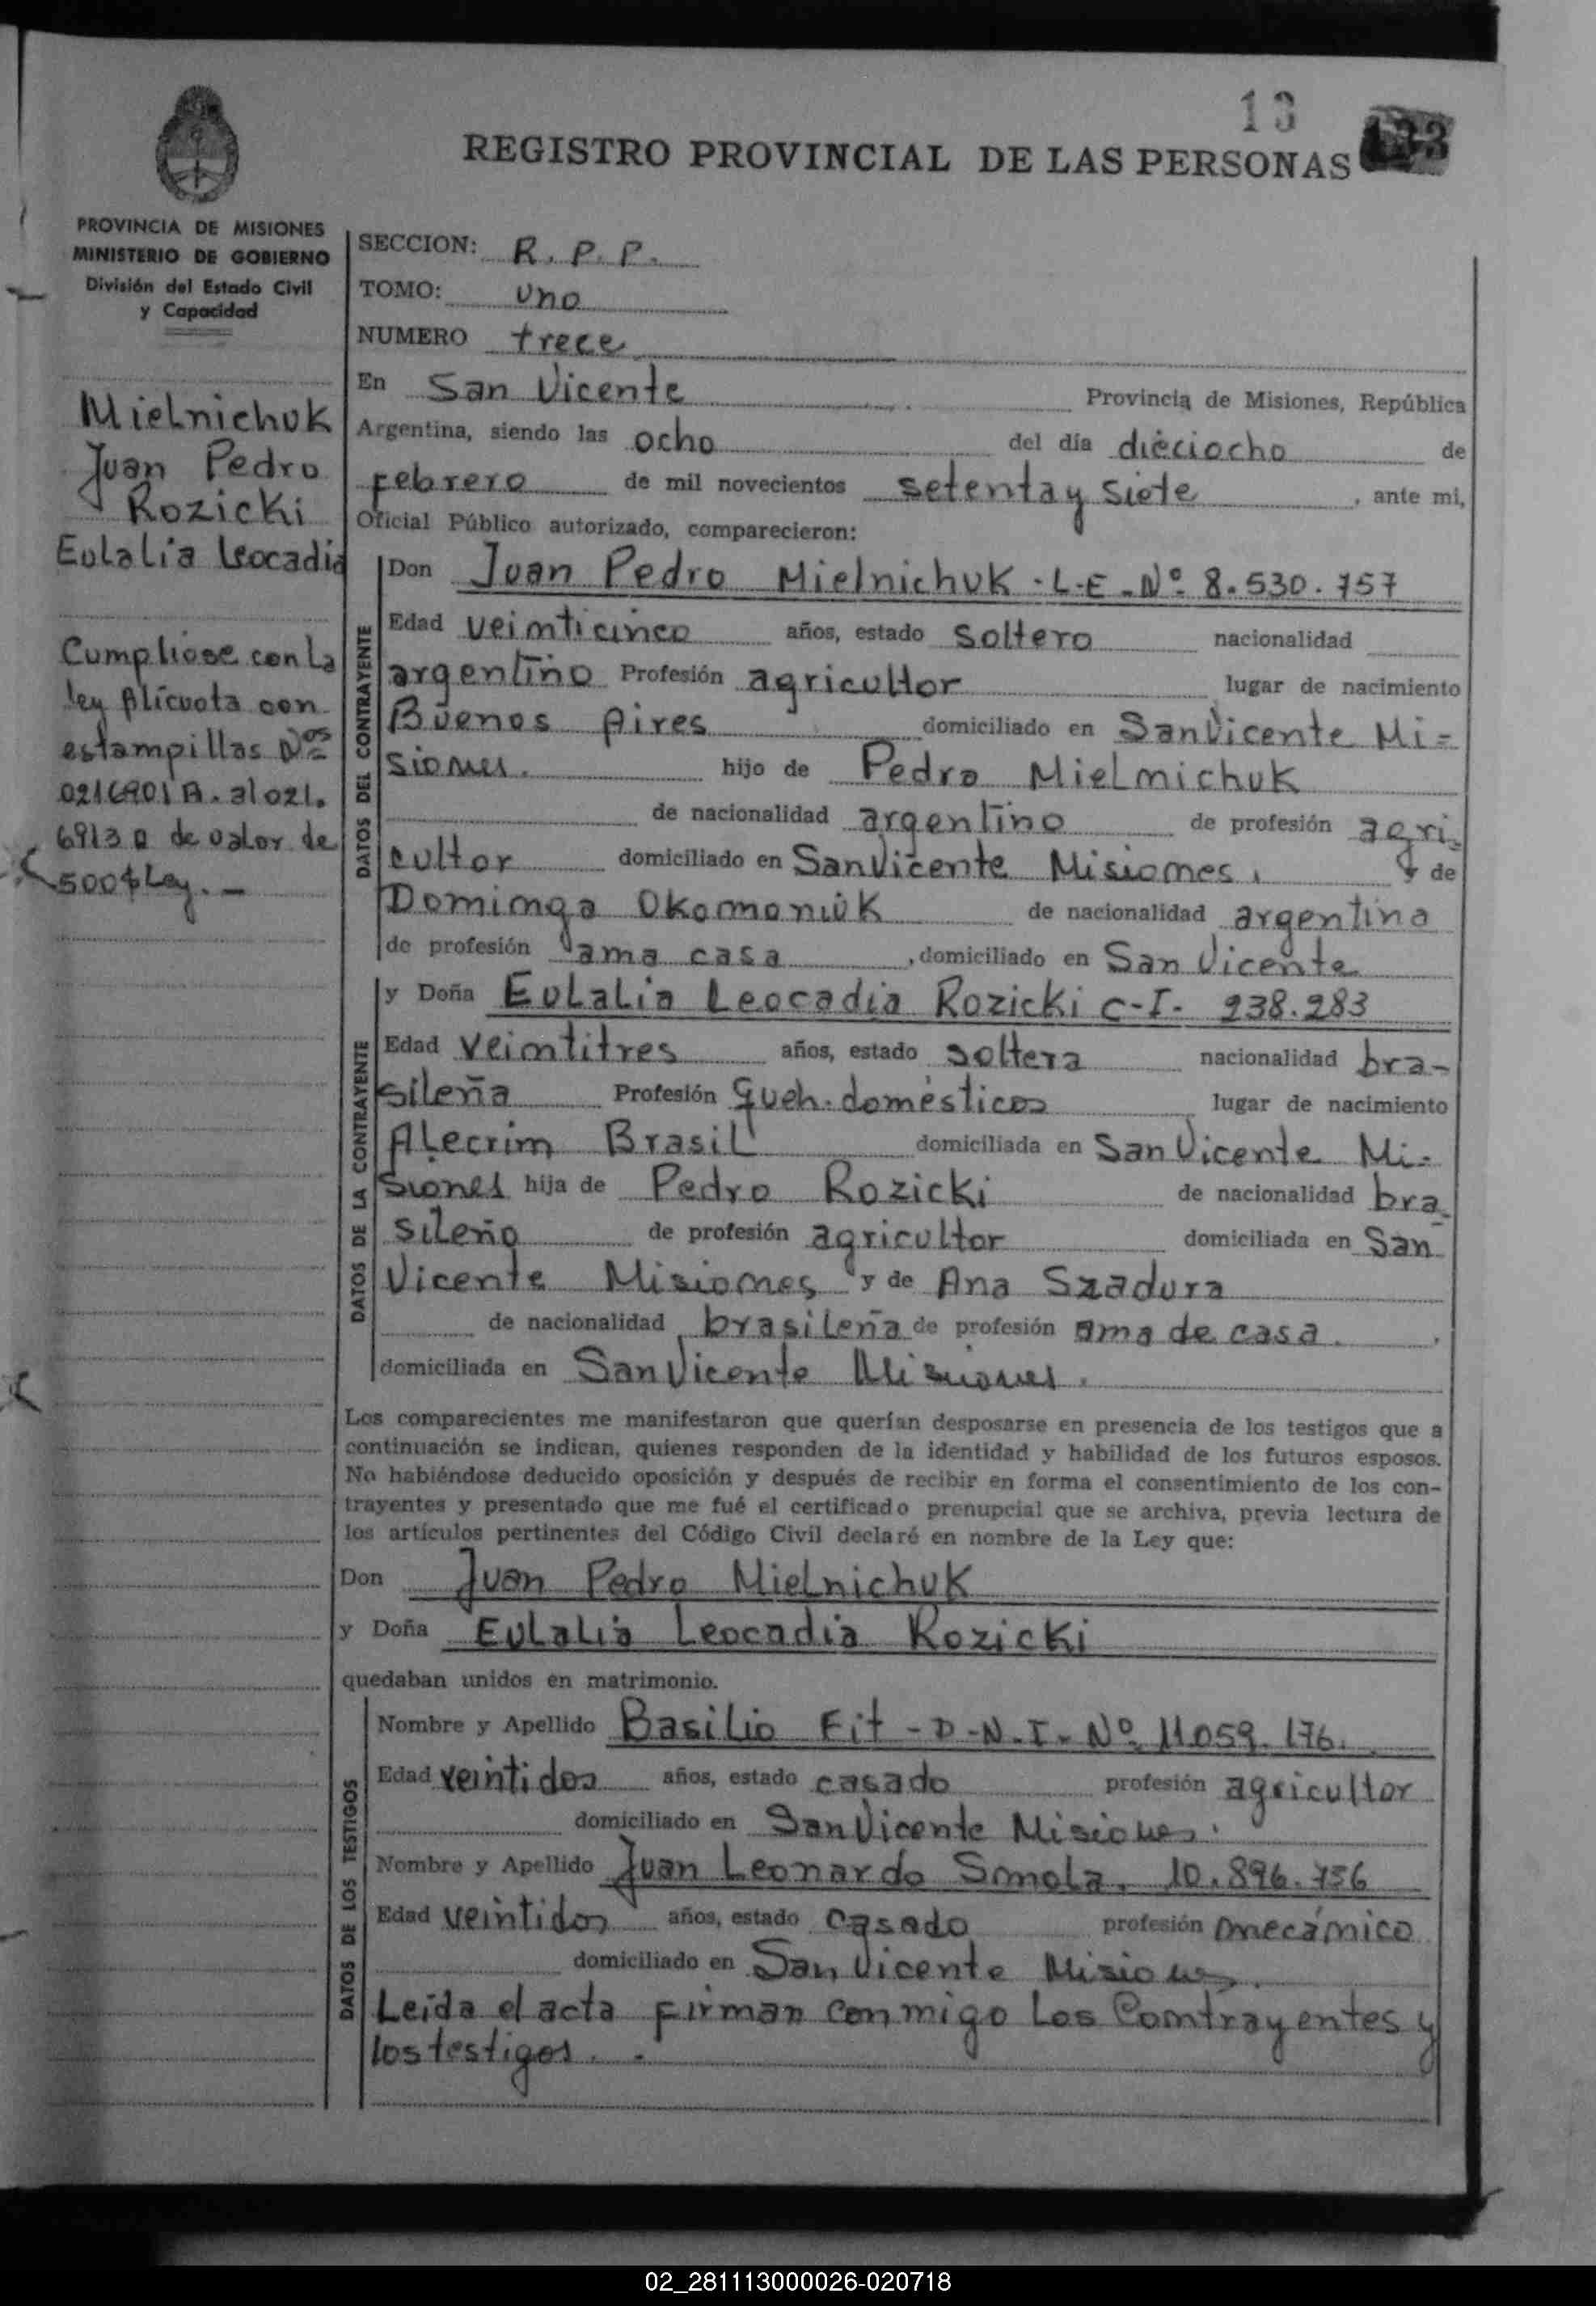 13
REGISTRO PROVINCIAL DE LAS PERSONAS
PROVINCIA DE MISIONES
MINISTERIO DE GOBIERNO
División del Estado Civil
y Capacidad
Mielnichuk
Juan Pedro
Rozicki
Eulalia Leocadia
Cumpliose con la
ley alícuota con
estampillas Nos
0216901 A. al 021.
6913 a de valor de
500$ Ley. -
SECCION: R. P. P.
TOMO: uno
NUMERO trece
En San Vicente Provincia de Misiones, República
Argentina, siendo las ocho del día dieciocho de
febrero de mil novecientos setenta y siete, ante mi,
Oficial Público autorizado, comparecieron:
DATOS DEL CONTRAYENTE
Don Juan Pedro Mielnichuk - L-E - Nº 8.530.757
Edad veinticinco años, estado soltero nacionalidad
argentino Profesión agricultor lugar de nacimiento
Buenos Aires domiciliado en San Vicente Mi=
siones. hijo de Pedro Mielnichuk
de nacionalidad argentino de profesión agri-
cultor domiciliado en San Vicente Misiones, y de
Dominga Okononiuk de nacionalidad argentina
de profesión ama casa, domiciliado en San Vicente
DATOS DE LA CONTRAYENTE
y Doña Eulalia Leocadia Rozicki C-I- 238.283
Edad veintitres años, estado soltera nacionalidad bra-
sileña Profesión Queh. domésticos lugar de nacimiento
Alecrim Brasil domiciliada en San Vicente Mi-
siones hija de Pedro Rozicki de nacionalidad bra-
sileño de profesión agricultor domiciliada en San
Vicente Misiones y de Ana Szadura
de nacionalidad brasileña de profesión ama de casa.,
domiciliada en San Vicente Misiones.
Los comparecientes me manifestaron que querían desposarse en presencia de los testigos que a
continuación se indican, quienes responden de la identidad y habilidad de los futuros esposos.
No habiéndose deducido oposición y después de recibir en forma el consentimiento de los con-
trayentes y presentado que me fué el certificado prenupcial que se archiva, previa lectura de
los artículos pertinentes del Código Civil declaré en nombre de la Ley que:
Don Juan Pedro Mielnichuk
y Doña Eulalia Leocadia Rozicki
quedaban unidos en matrimonio.
DATOS DE LOS TESTIGOS
Nombre y Apellido Basilio Fit - D-N-I- Nº 11059.176.
Edad veintidos años, estado casado profesión agricultor
domiciliado en San Vicente Misiones.
Nombre y Apellido Juan Leonardo Smola, 10.896.756
Edad veintidos años, estado casado profesión mecánico
domiciliado en San Vicente Misiones.
Leída el acta firman conmigo los Contrayentes y
los testigos. -
02_281113000026-020718